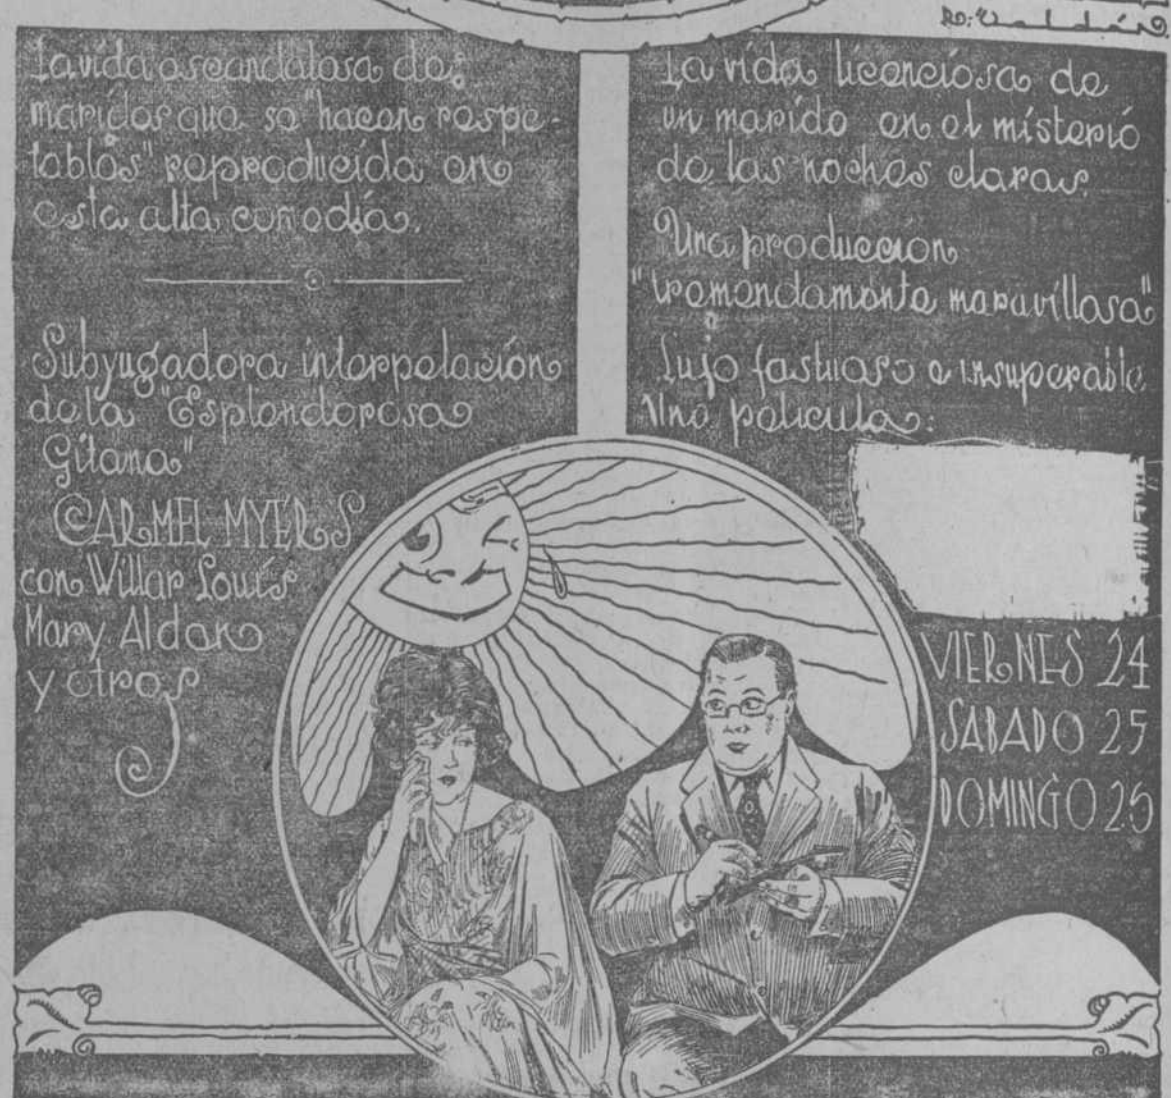 La vida escandalosa de
maridos que se "hacen respe-
tables" reproducida en
esta alta comedia.
Subyugadora interpelación
de la "Esplendorosa
Gitana"
CARMEL MYERS
con Willar Louis
Mary Alden
y otros
La vida licenciosa de
un marido en el misterio
de las noches claras.
Una produccion
"tremendamente maravillosa"
Lujo fastuoso e insuperable
Una pelicula:
VIERNES 24
SABADO 25
DOMINGO 26